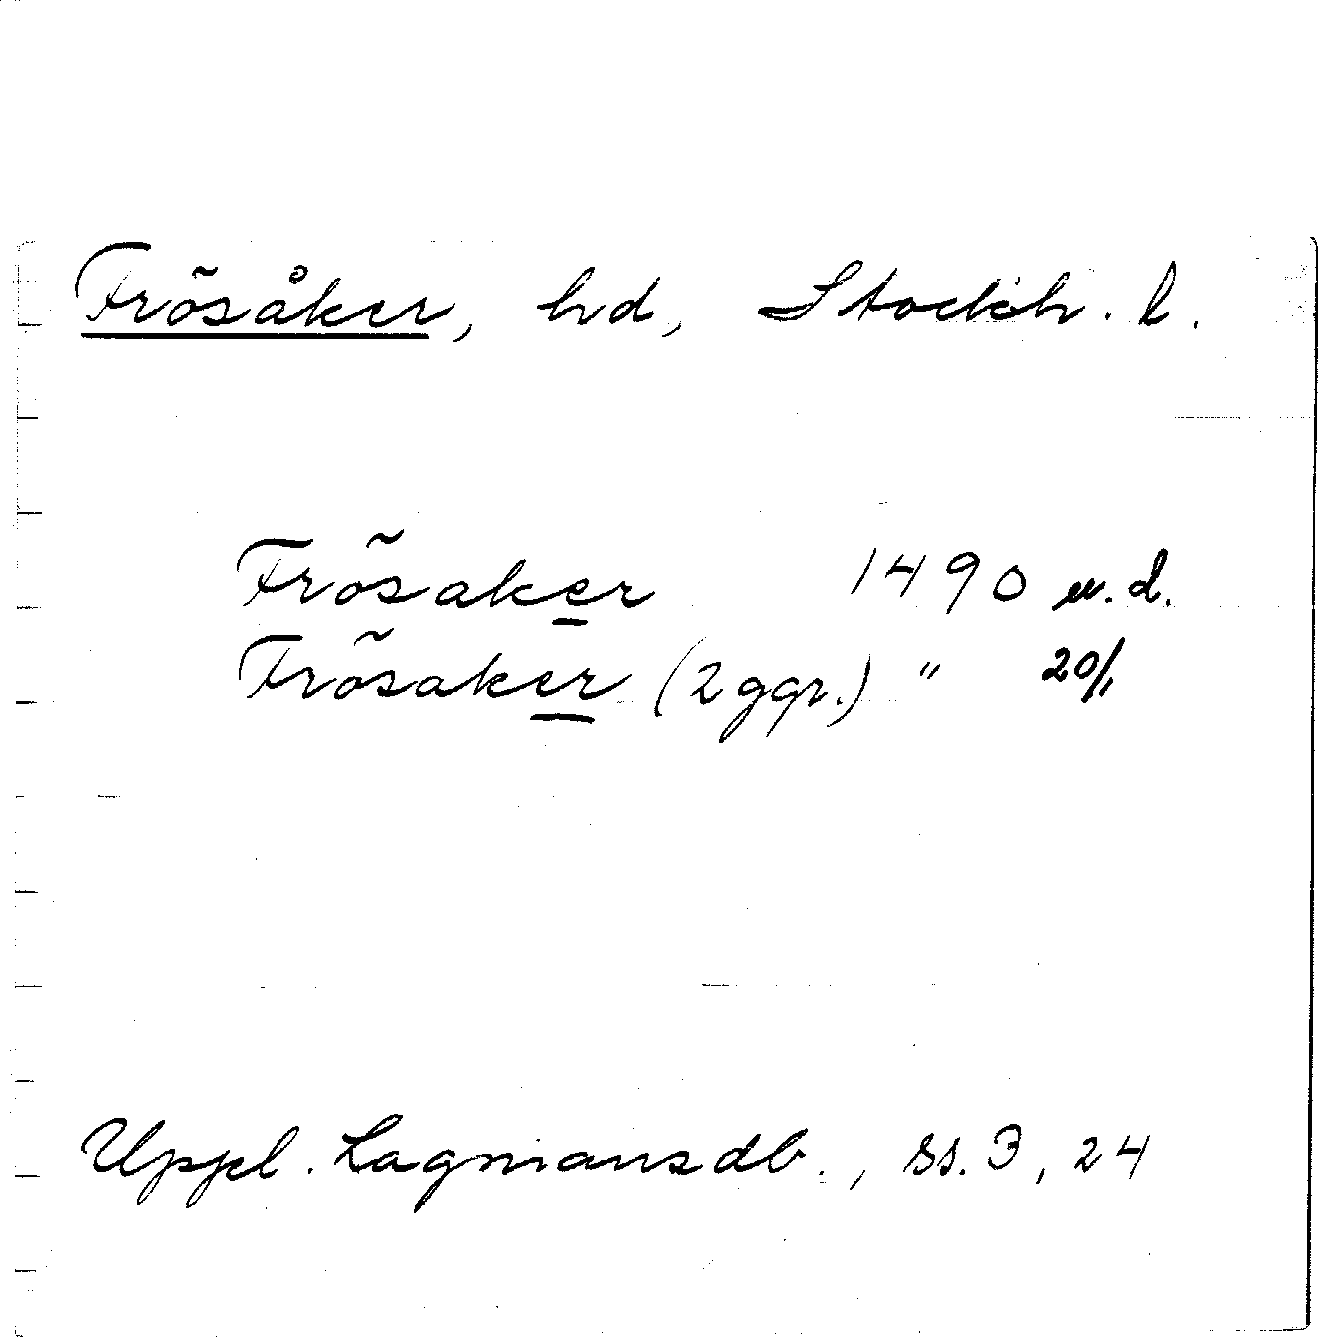 Frösåker, hd, Stockh. l.
Frösaker 1490 u.d.
Frösaker (2 ggr.) " 20/1
Uppl. Lagmansdb., ss. 3, 24